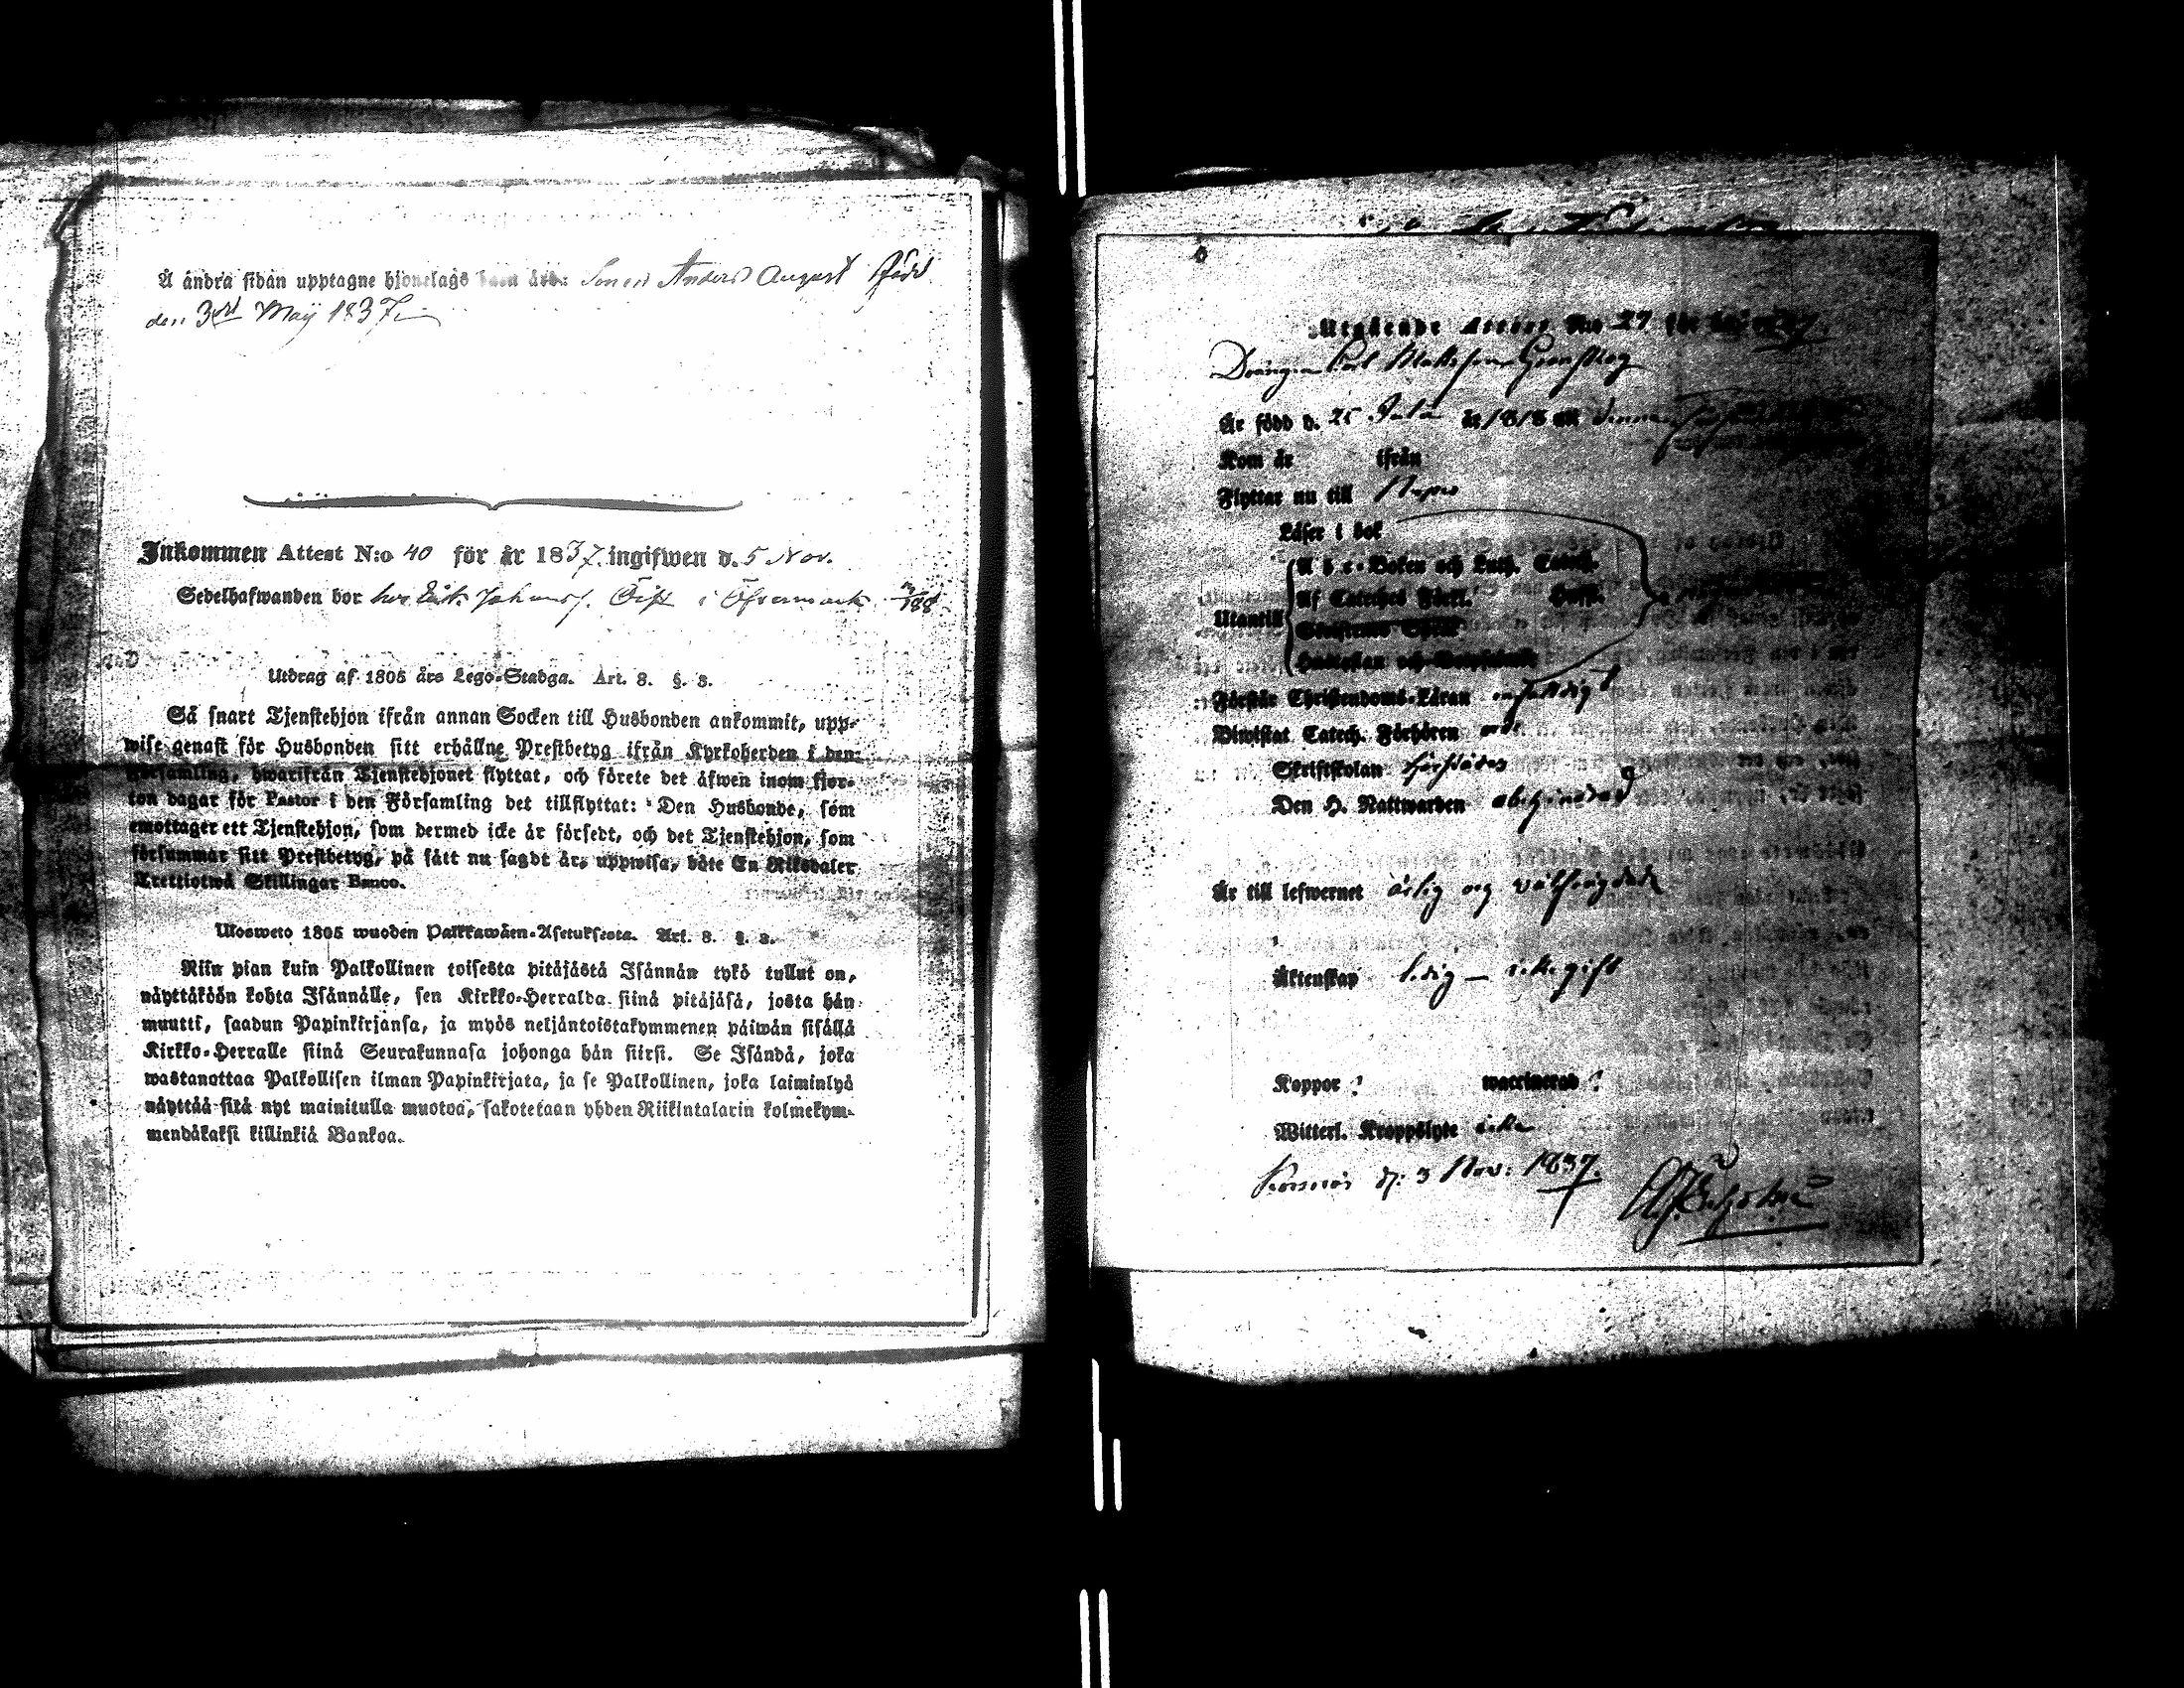 Å andra sidan upptagne hjonelags barn äro: Sonen Anders August född
den 3rd Maij 1837
Inkommen Attest N:o 40 för år 1837. ingifwen d. 5 Nov.
Sedelhafwanden bor hos Erik Johanss. i Öfvermark
Utdrag af 1805 års Lego-Stadga. Art. 8. §. 3.
Så snart Tjenstehjon ifrån annan Socken till Husbonden ankommit, upp-
wise genast för Husbonden sitt erhållne Prestbetyg ifrån Kyrkoherden i den
Församling, hwarifrån Tjenstehjonet flyttat, och förete det äfwen inom fjor-
ton dagar för Pastor i den Församling det tillflyttat: Den Husbonde, som
emottager ett Tjenstehjon, som dermed icke är försedt, och det Tjenstehjon, som
försummar sitt Prestbetyg, på sätt nu sagdt är, uppwisa, böte En Riksdaler
Trettiotwå Skillingar Banco.
Ulosweto 1805 wuoden Palkkawäen-Asetuksesta. Art. 8. §. 3.
Niin pian kuin Palkollinen toisesta pitäjästä Isännän tykö tullut on,
näyttäköön kohta Isännälle, sen Kirkko-Herralda siinä pitäjäsä, josta hän
muutti, saadun Papinkirjansa, ja myös neljäntoistakymmenen päiwän sisällä
Kirkko-Herralle siinä Seurakunnasa johonga hän siirsi. Se Isändä, joka
wastanottaa Palkollisen ilman Papinkirjata, ja se Palkollinen, joka laiminlyö
näyttää sitä nyt mainitulla muotoa, sakotetaan yhden Riikintalarin kolmekym-
mendäkaksi killinkiä Bankoa.
Utgående Attest No 27 för år 1837.
Drängen Carl Mattsson
Är född d. 25 Julii år 1818 uti denna
Kom år ifrån
Flyttar nu till
Läser i bok
A b c-Boken och Luth. Catech.
Af Cateches Förkl. Hust.
Utantill
Hustaflan och
Förstår Christendoms-Läran enfaldigt
Biwistat Catech. Förhören
Skriftskolan
Den H. Nattwarden
Är till lefwernet ärlig og välfrägdad
Äktenskap ledig — icke gift
Koppor ? waccinerad ?
Witterl. Kroppslyte icke
Korsnäs d. 3 Nov: 1837.